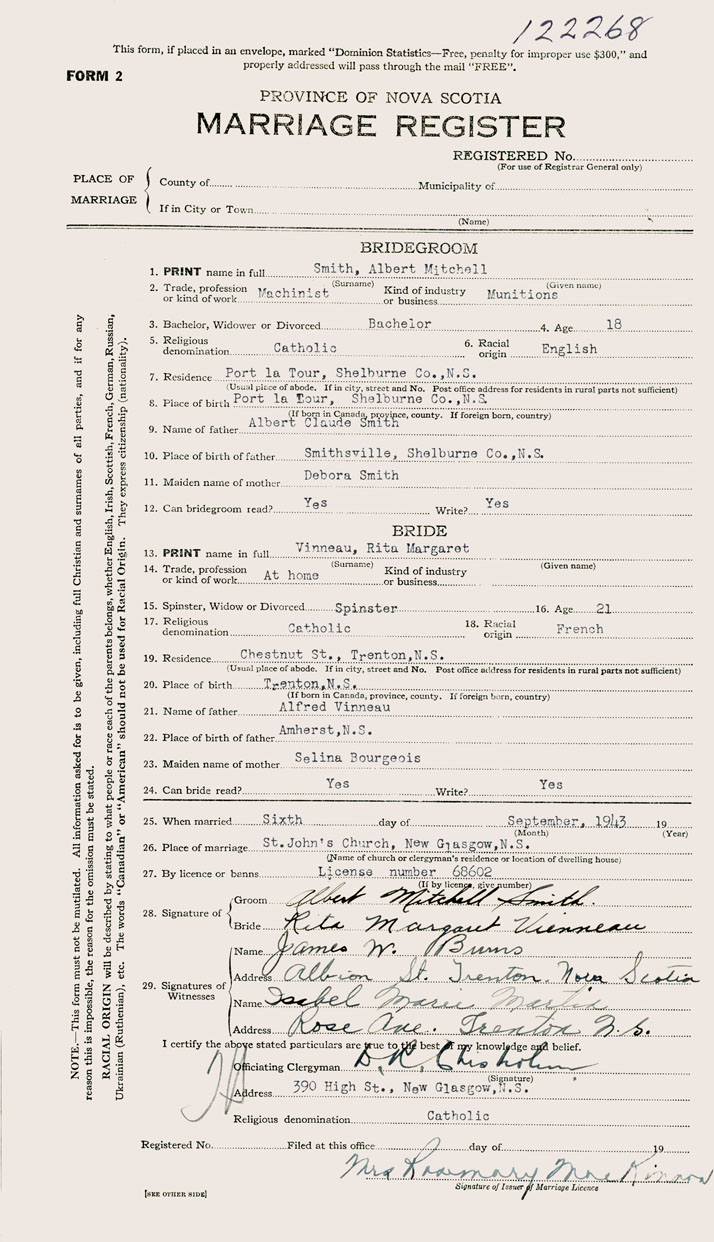 122268
This form, if placed in an envelope, marked "Dominion Statistics—Free, penalty for improper use $300," and
properly addressed will pass through the mail "FREE".
FORM 2
PROVINCE OF NOVA SCOTIA
MARRIAGE REGISTER
REGISTERED No.
(For use of Registrar General only)
PLACE OF MARRIAGE
County of Municipality of
If in City or Town
(Name)
BRIDEGROOM
1. PRINT name in full Smith, Albert Mitchell
(Surname) (Given name)
2. Trade, profession or kind of work Machinist Kind of industry or business Munitions
3. Bachelor, Widower or Divorced Bachelor 4. Age 18
5. Religious denomination Catholic 6. Racial origin English
7. Residence Port la Tour, Shelburne Co.,N.S.
(Usual place of abode. If in city, street and No. Post office address for residents in rural parts not sufficient)
8. Place of birth Port la Tour, Shelburne Co.,N.S.
(If born in Canada, province, county. If foreign born, country)
9. Name of father Albert Claude Smith
10. Place of birth of father Smithsville, Shelburne Co.,N.S.
11. Maiden name of mother Debora Smith
12. Can bridegroom read? Yes Write? Yes
BRIDE
13. PRINT name in full Vinneau, Rita Margaret
(Surname) (Given name)
14. Trade, profession or kind of work At home Kind of industry or business
15. Spinster, Widow or Divorced Spinster 16. Age 21
17. Religious denomination Catholic 18. Racial origin French
19. Residence Chestnut St., Trenton,N.S.
(Usual place of abode. If in city, street and No. Post office address for residents in rural parts not sufficient)
20. Place of birth Trenton,N.S.
(If born in Canada, province, county. If foreign born, country)
21. Name of father Alfred Vinneau
22. Place of birth of father Amherst,N.S.
23. Maiden name of mother Selina Bourgeois
24. Can bride read? Yes Write? Yes
25. When married Sixth day of September, 1943 19
(Month) (Year)
26. Place of marriage St.John's Church, New Glasgow,N.S.
(Name of church or clergyman's residence or location of dwelling house)
27. By licence or banns License number 68602
(If by licence, give number)
28. Signature of
Groom Albert Mitchell Smith.
Bride Rita Margaret Vienneau
29. Signatures of Witnesses
Name James W. Burns
Address Albion St. Trenton. Nova Scotia
Name Isabel Marie Martin
Address Rose Ave. Trenton N.S.
I certify the above stated particulars are true to the best of my knowledge and belief.
Officiating Clergyman D. R. Chisholm
(Signature)
Address 390 High St., New Glasgow,N.S.
Religious denomination Catholic
Registered No. Filed at this office day of 19
Mrs Rosemary Mac Kinnon
Signature of Issuer of Marriage Licence
[SEE OTHER SIDE]
NOTE.—This form must not be mutilated. All information asked for is to be given, including full Christian and surnames of all parties, and if for any
reason this is impossible, the reason for the omission must be stated.
RACIAL ORIGIN will be described by stating to what people or race each of the parents belongs, whether English, Irish, Scottish, French, German, Russian,
Ukrainian (Ruthenian), etc. The words "Canadian" or "American" should not be used for Racial Origin. They express citizenship (nationality).